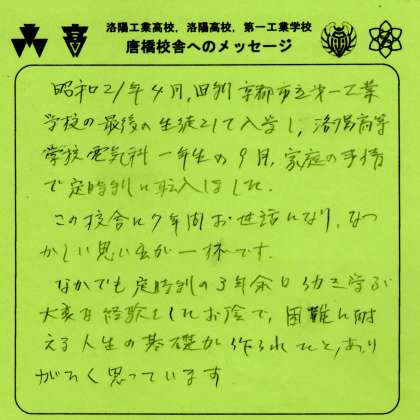 洛陽工業高校，洛陽高校，第一工業学校
唐橋校舎へのメッセージ
昭和21年4月，旧制京都市立第一工業
学校の最後の生徒として入学し，洛陽高等
学校電気科一年生の9月，家庭の事情
で定時制に転入しました．
この校舎に7年間お世話になり，なつ
かしい思い出が一杯です．
なかでも定時制の3年余は働き学ぶ
大変な経験をしたお陰で，困難に耐
える人生の基礎が作られたと，あり
がたく思っています